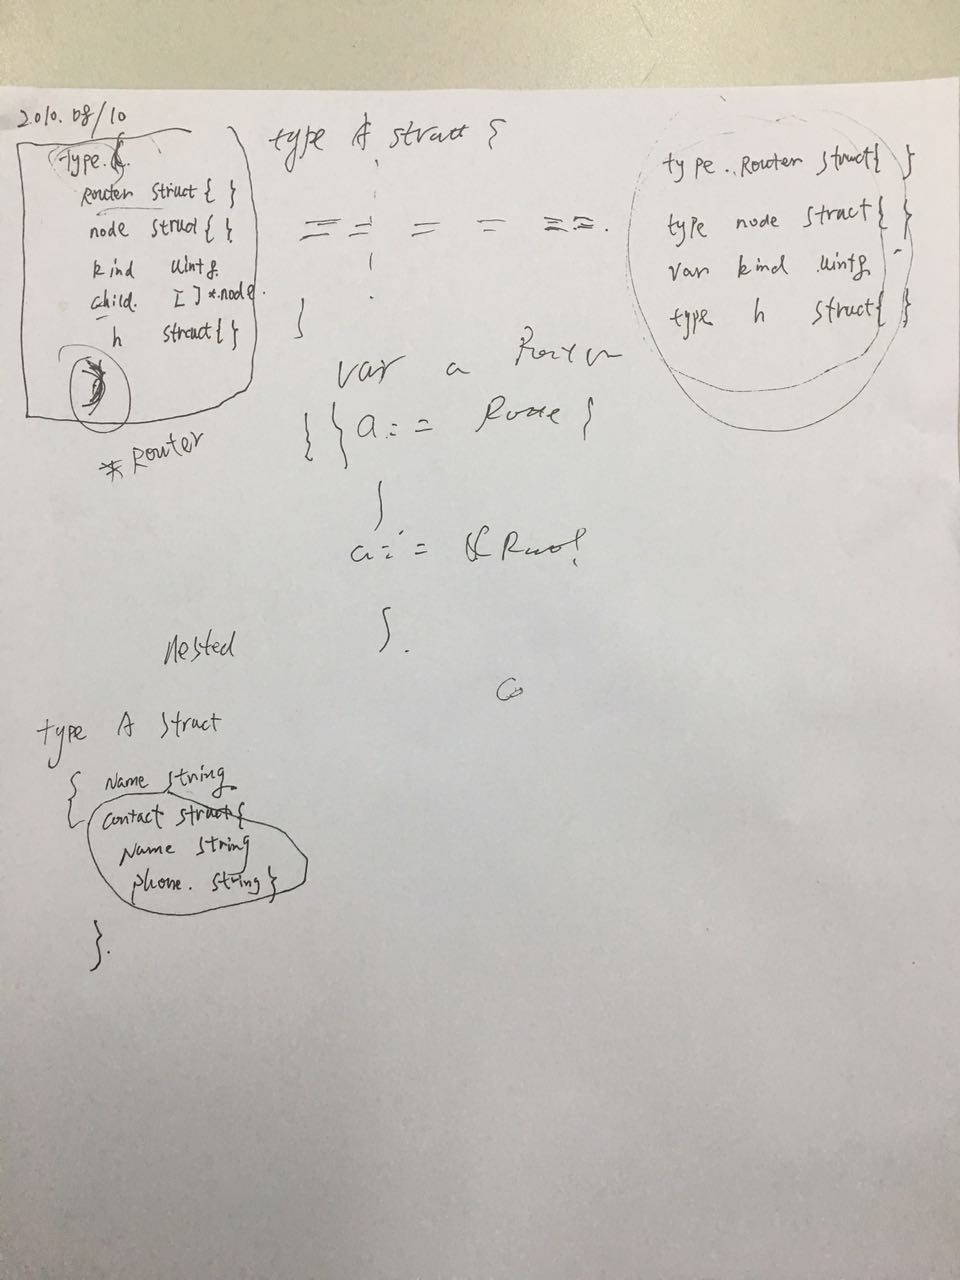 2010.08/10
type (
Router struct { }
node struct { }
kind uint8
child. [ ] *node.
h struct { }
)
* Router
type A struct {
}
var a Router
{ } a :=
}
a :=
}.
type Router struct { }
type node struct { }
var kind uint8
type h struct { }
Nested
type A struct
{ Name string
contact struct {
Name string
phone. string }
}.